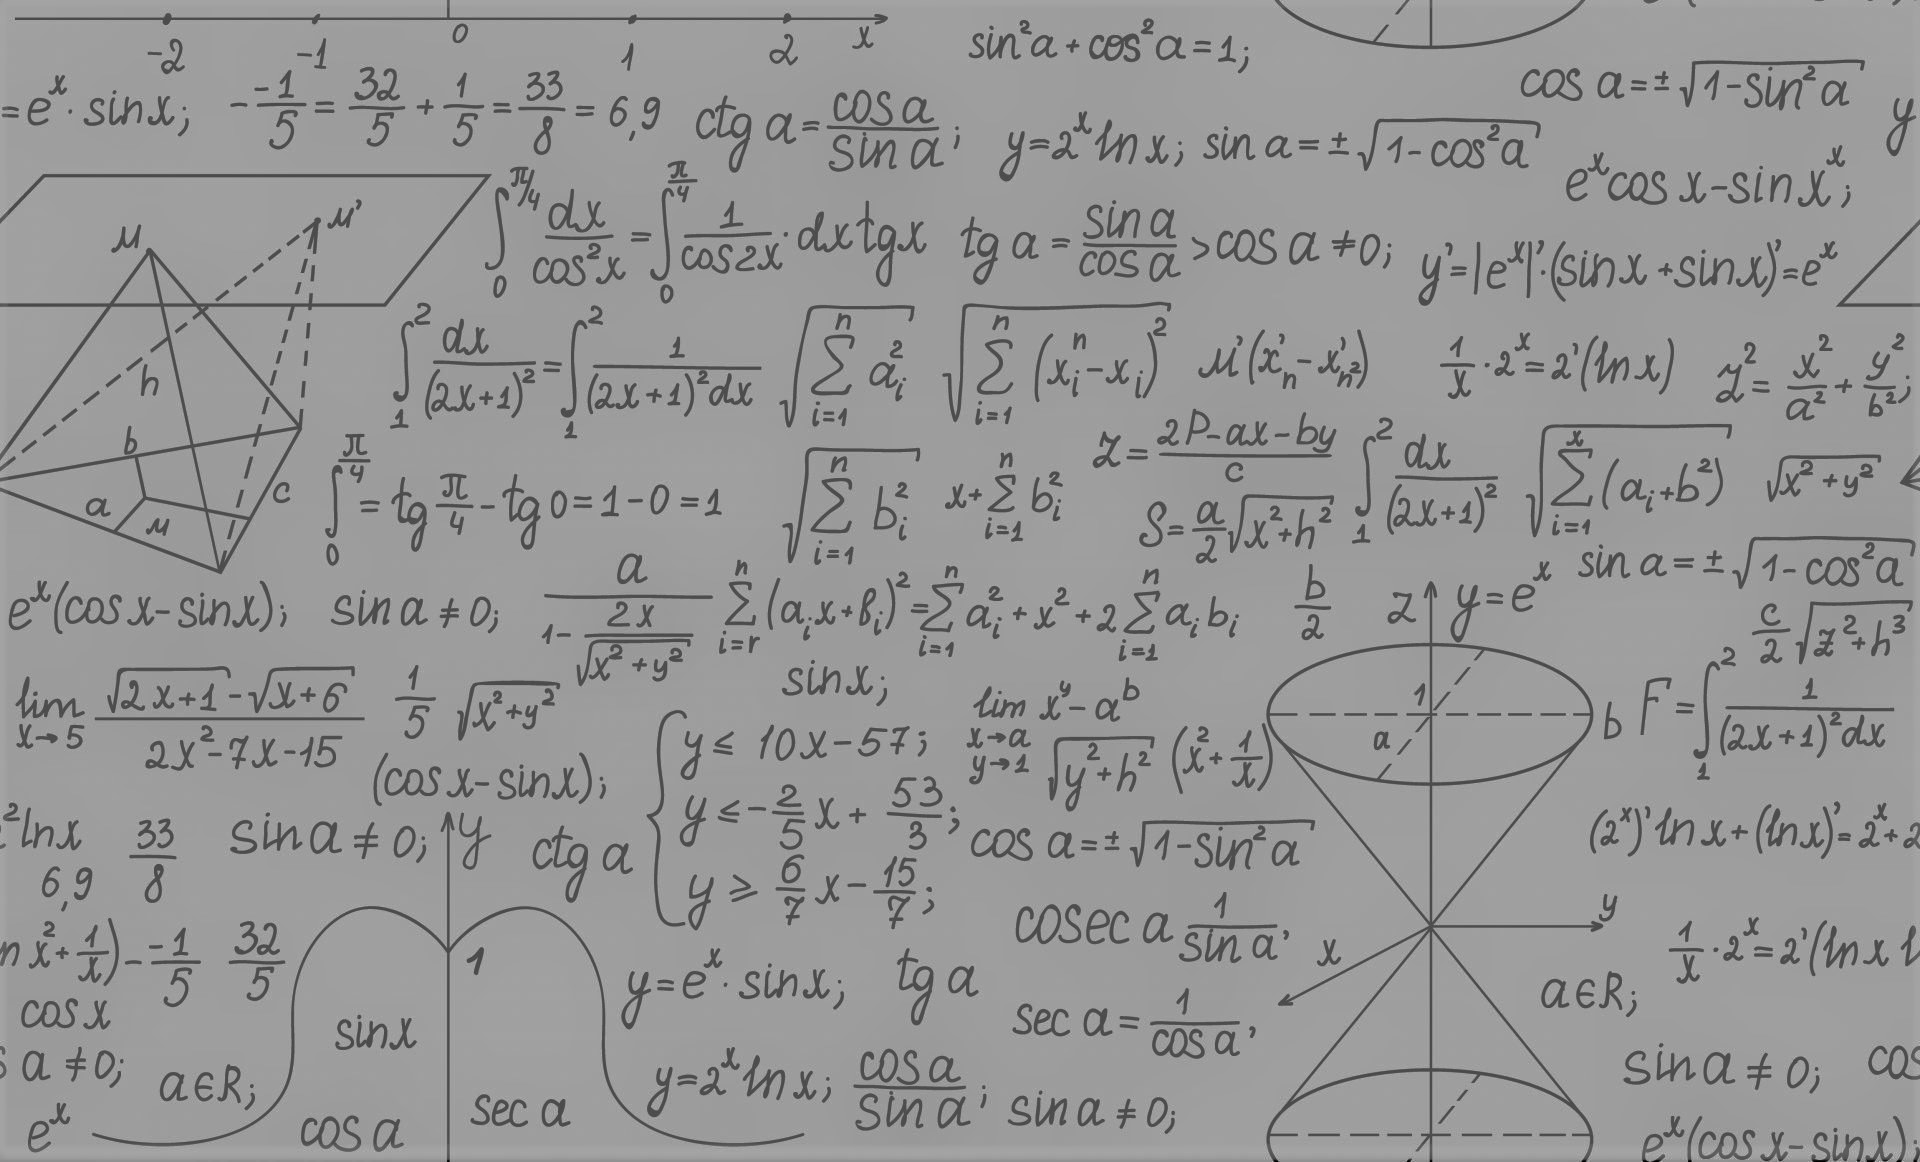 -2 -1 0 1 2 x
sin²a + cos²a = 1;
cos a = ± √(1-sin²a)
= eˣ · sin x; - -1/5 = 32/5 + 1/5 = 33/8 = 6,9
ctg a = cos a / sin a;
y = 2ˣ ln x; sin a = ± √(1-cos²a)
y
eˣ cos x - sin xˣ;
μ μ'
∫₀^(π/4) dx/cos²x = ∫₀^(π/4) 1/cos2x · dx tg x
tg a = sin a / cos a > cos a ≠ 0;
y' = |eˣ|' · (sin x + sin x)' = eˣ
h
b
a
μ
c
∫₁² dx/(2x+1)² = ∫₁² 1/(2x+1)² dx
√(∑ᵢ₌₁ⁿ aᵢ²)
√(∑ᵢ₌₁ⁿ (xᵢⁿ - xᵢ)²)
μ'(x'ₙ - x'ₙ²)
1/x · 2ˣ = 2'(ln x)
z² = x²/a² + y²/b²;
∫₀^(π/4) = tg π/4 - tg 0 = 1 - 0 = 1
√(∑ᵢ₌₁ⁿ bᵢ²)
x + ∑ᵢ₌₁ⁿ bᵢ²
z = (2P - ax - by)/c
S = a/2 √(x²+h²)
∫₁² dx/(2x+1)²
√(∑ᵢ₌₁ˣ (aᵢ+b²))
√(x²+y²)
sin a = ± √(1-cos²a)
eˣ(cos x - sin x);
sin a ≠ 0;
a/(1 - 2x/√(x²+y²))
∑ᵢ₌ᵣⁿ (aᵢx + bᵢ)² = ∑ᵢ₌₁ⁿ aᵢ² + x² + 2∑ᵢ₌₁ⁿ aᵢ bᵢ
b/2
z
y = eˣ
c/2 √(z²+h³)
lim x→5 (√(2x+1) - √(x+6))/(2x²-7x-15)
1/5
√(x²+y²)
sin x;
lim x→a y→1 xʸ - aᵇ
1
a
b
F = ∫₁² 1/(2x+1)² dx
(cos x - sin x);
y ≤ 10x - 57;
y ≤ - 2/5 x + 53/3;
y ≥ 6/7 x - 15/7;
√(y²+h²) (x² + 1/x)
² ln x
33/8
6,9
sin a ≠ 0;
y
ctg a
cos a = ± √(1-sin²a)
(2ˣ)' ln x + (ln x)' = 2ˣ + 2
n x² + 1/x) - -1/5
32/5
1
cosec a 1/sin a,
x
y
1/x · 2ˣ = 2'(ln x l
y = eˣ · sin x;
tg a
a∈R;
cos x
sin x
sec a = 1/cos a,
s a ≠ 0;
a∈R;
y = 2ˣ ln x;
cos a / sin a;
sin a ≠ 0;
sin a ≠ 0;
cos
eˣ
cos a
sec a
eˣ(cos x - sin x);